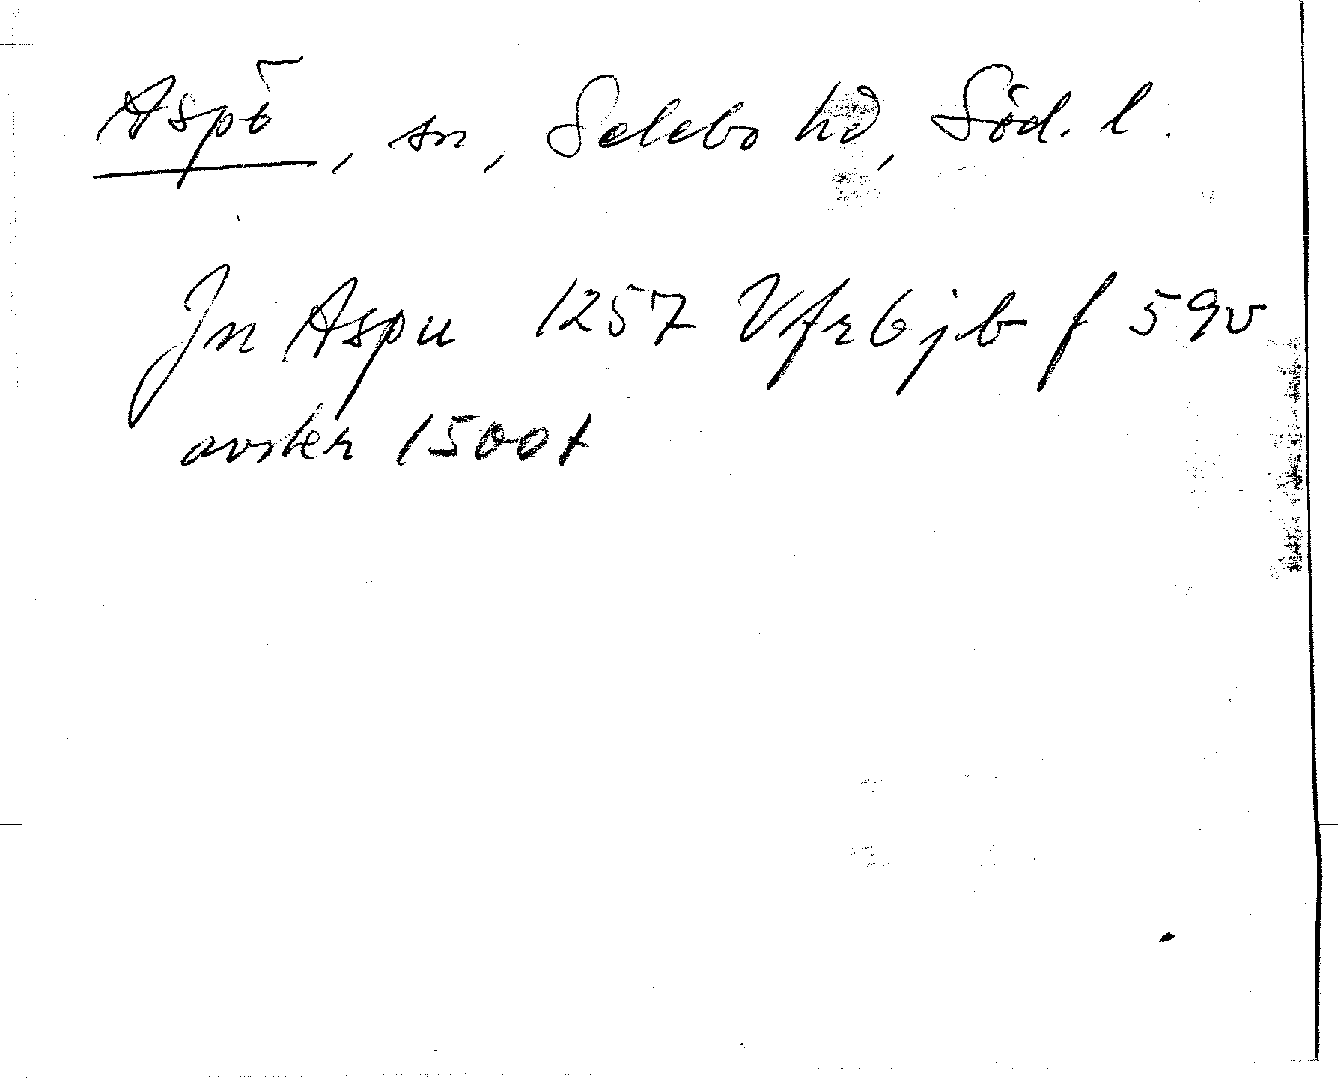 Aspö, sn, Selebo hd, Söd. l.
Jn Aspu 1257 Vfrbjb f 59v
avskr 1500t